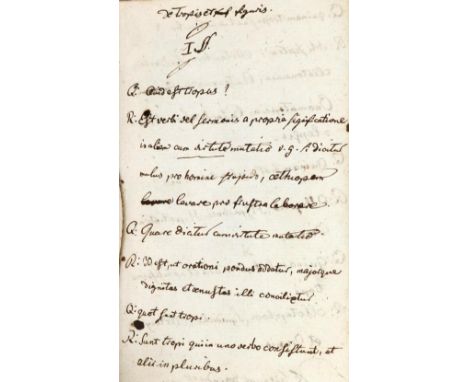 de tropis et figuris.
I §.
Q: Quid est tropus?
R: Est verbi vel sermonis a propria significatione
in aliam cum virtute mutatio v. g. si dicatur
mulus pro homine stupido, æthiopem
lavare pro frustra laborare
Q: Quare dicitur cum virtute mutatio.
R: Id est, ut orationi pondus addatur, majorque
dignitas et venustas illi concilietur
Q: quot sunt tropi
R: Sunt tropi qui in uno verbo consistunt, et
alii in pluribus.